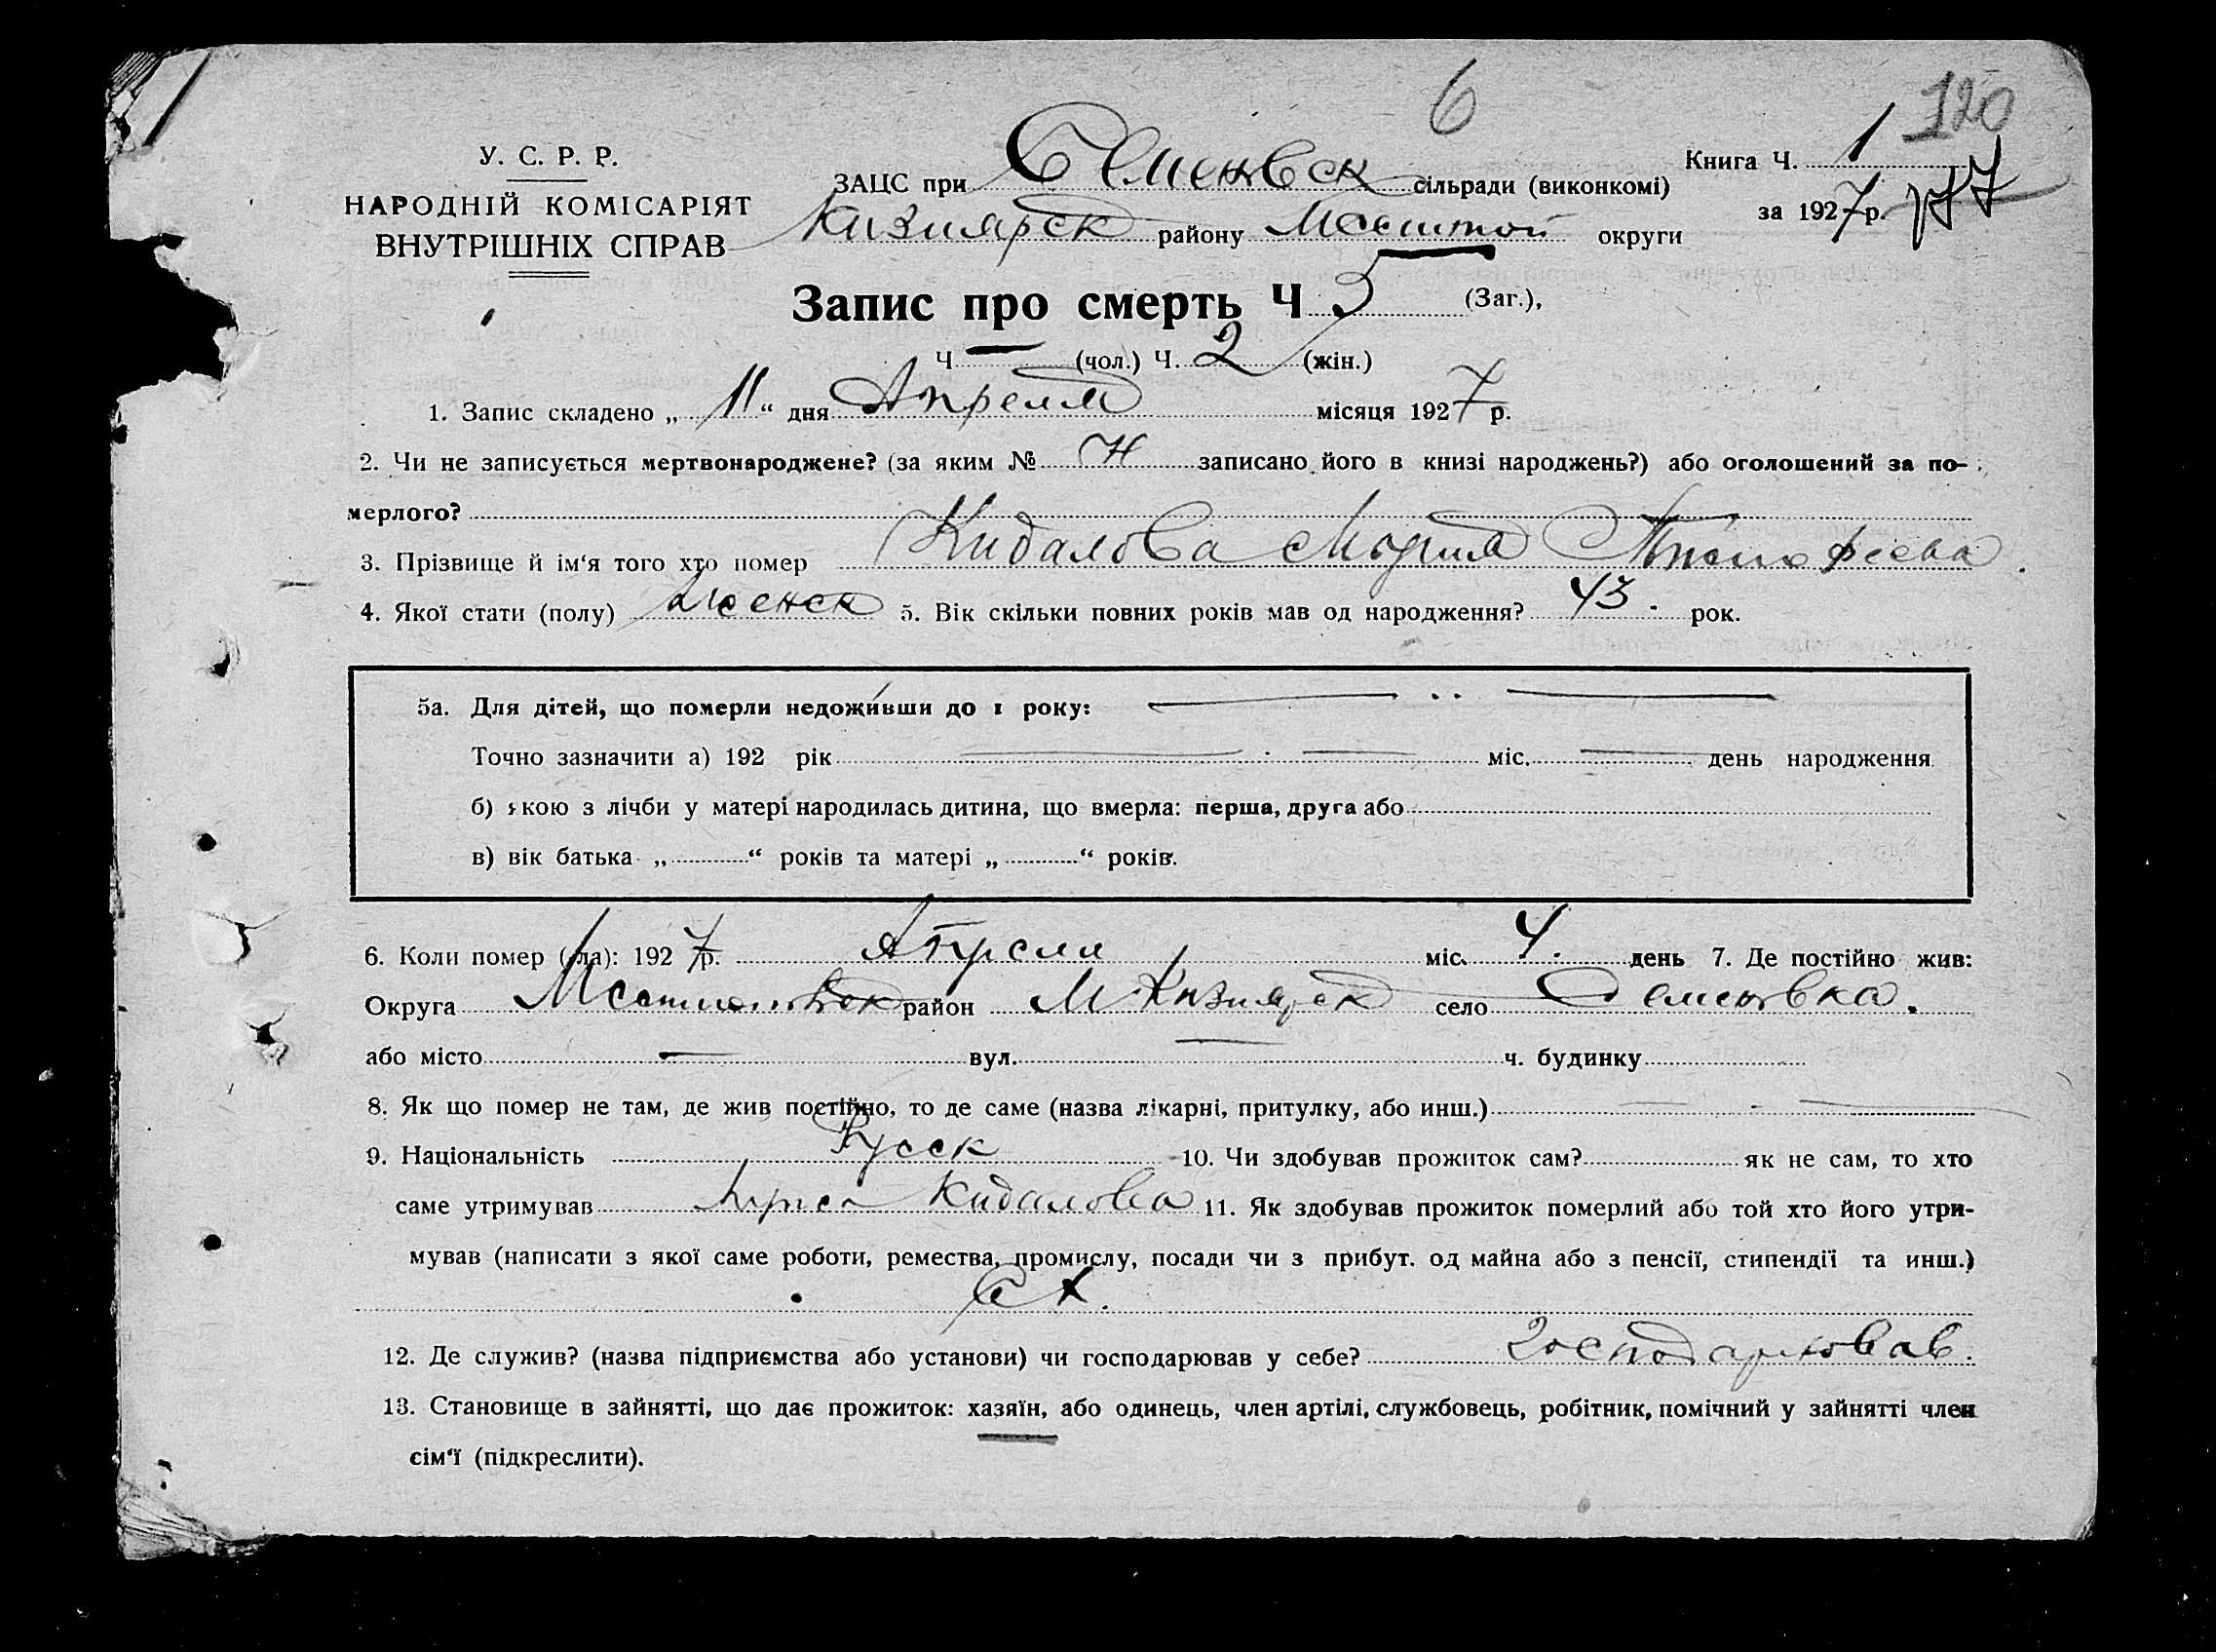 6
120
У. С. Р. Р.
НАРОДНІЙ КОМІСАРІЯТ
ВНУТРІШНІХ СПРАВ
ЗАЦС при Семеновск сільради (виконкомі)
Кизиярск району округи
Книга Ч. 1
за 1927 р. 77
Запис про смерть Ч 3 (Заг.),
Ч — (чол.) Ч. 2 (жін.)
1. Запис складено „ 11 “ дня Апреля місяця 1927 р.
2. Чи не записується мертвонароджене? (за яким № Н записано його в книзі народжень?) або оголошений за по-
мерлого?
3. Прізвище й ім‘я того хто помер Кидалова Мария Тимофеева
4. Якої стати (полу) Женск 5. Вік скільки повних років мав од народження? 43. рок.
5а. Для дітей, що померли недоживши до 1 року:
Точно зазначити а) 192 рік міс. день народження
б) якою з лічби у матері народилась дитина, що вмерла: перша, друга або
в) вік батька „ “ років та матері „ “ років.
6. Коли помер (ла): 1927 р. Апреля міс. 4. день 7. Де постійно жив:
Округа район М. Кизиярск село Семеновка.
або місто — вул. — ч. будинку
8. Як що помер не там, де жив постійно, то де саме (назва лікарні, притулку, або инш.)
9. Національність Русск 10. Чи здобував прожиток сам? як не сам, то хто
саме утримував Кидалова 11. Як здобував прожиток померлий або той хто його утри-
мував (написати з якої саме роботи, ремества, промислу, посади чи з прибут. од майна або з пенсії, стипендії та инш.)
С Х.
12. Де служив? (назва підприємства або установи) чи господарював у себе? господарював.
13. Становище в зайнятті, що дає прожиток: хазяїн, або одинець, член артілі, службовець, робітник, помічний у зайнятті член
сім‘ї (підкреслити).